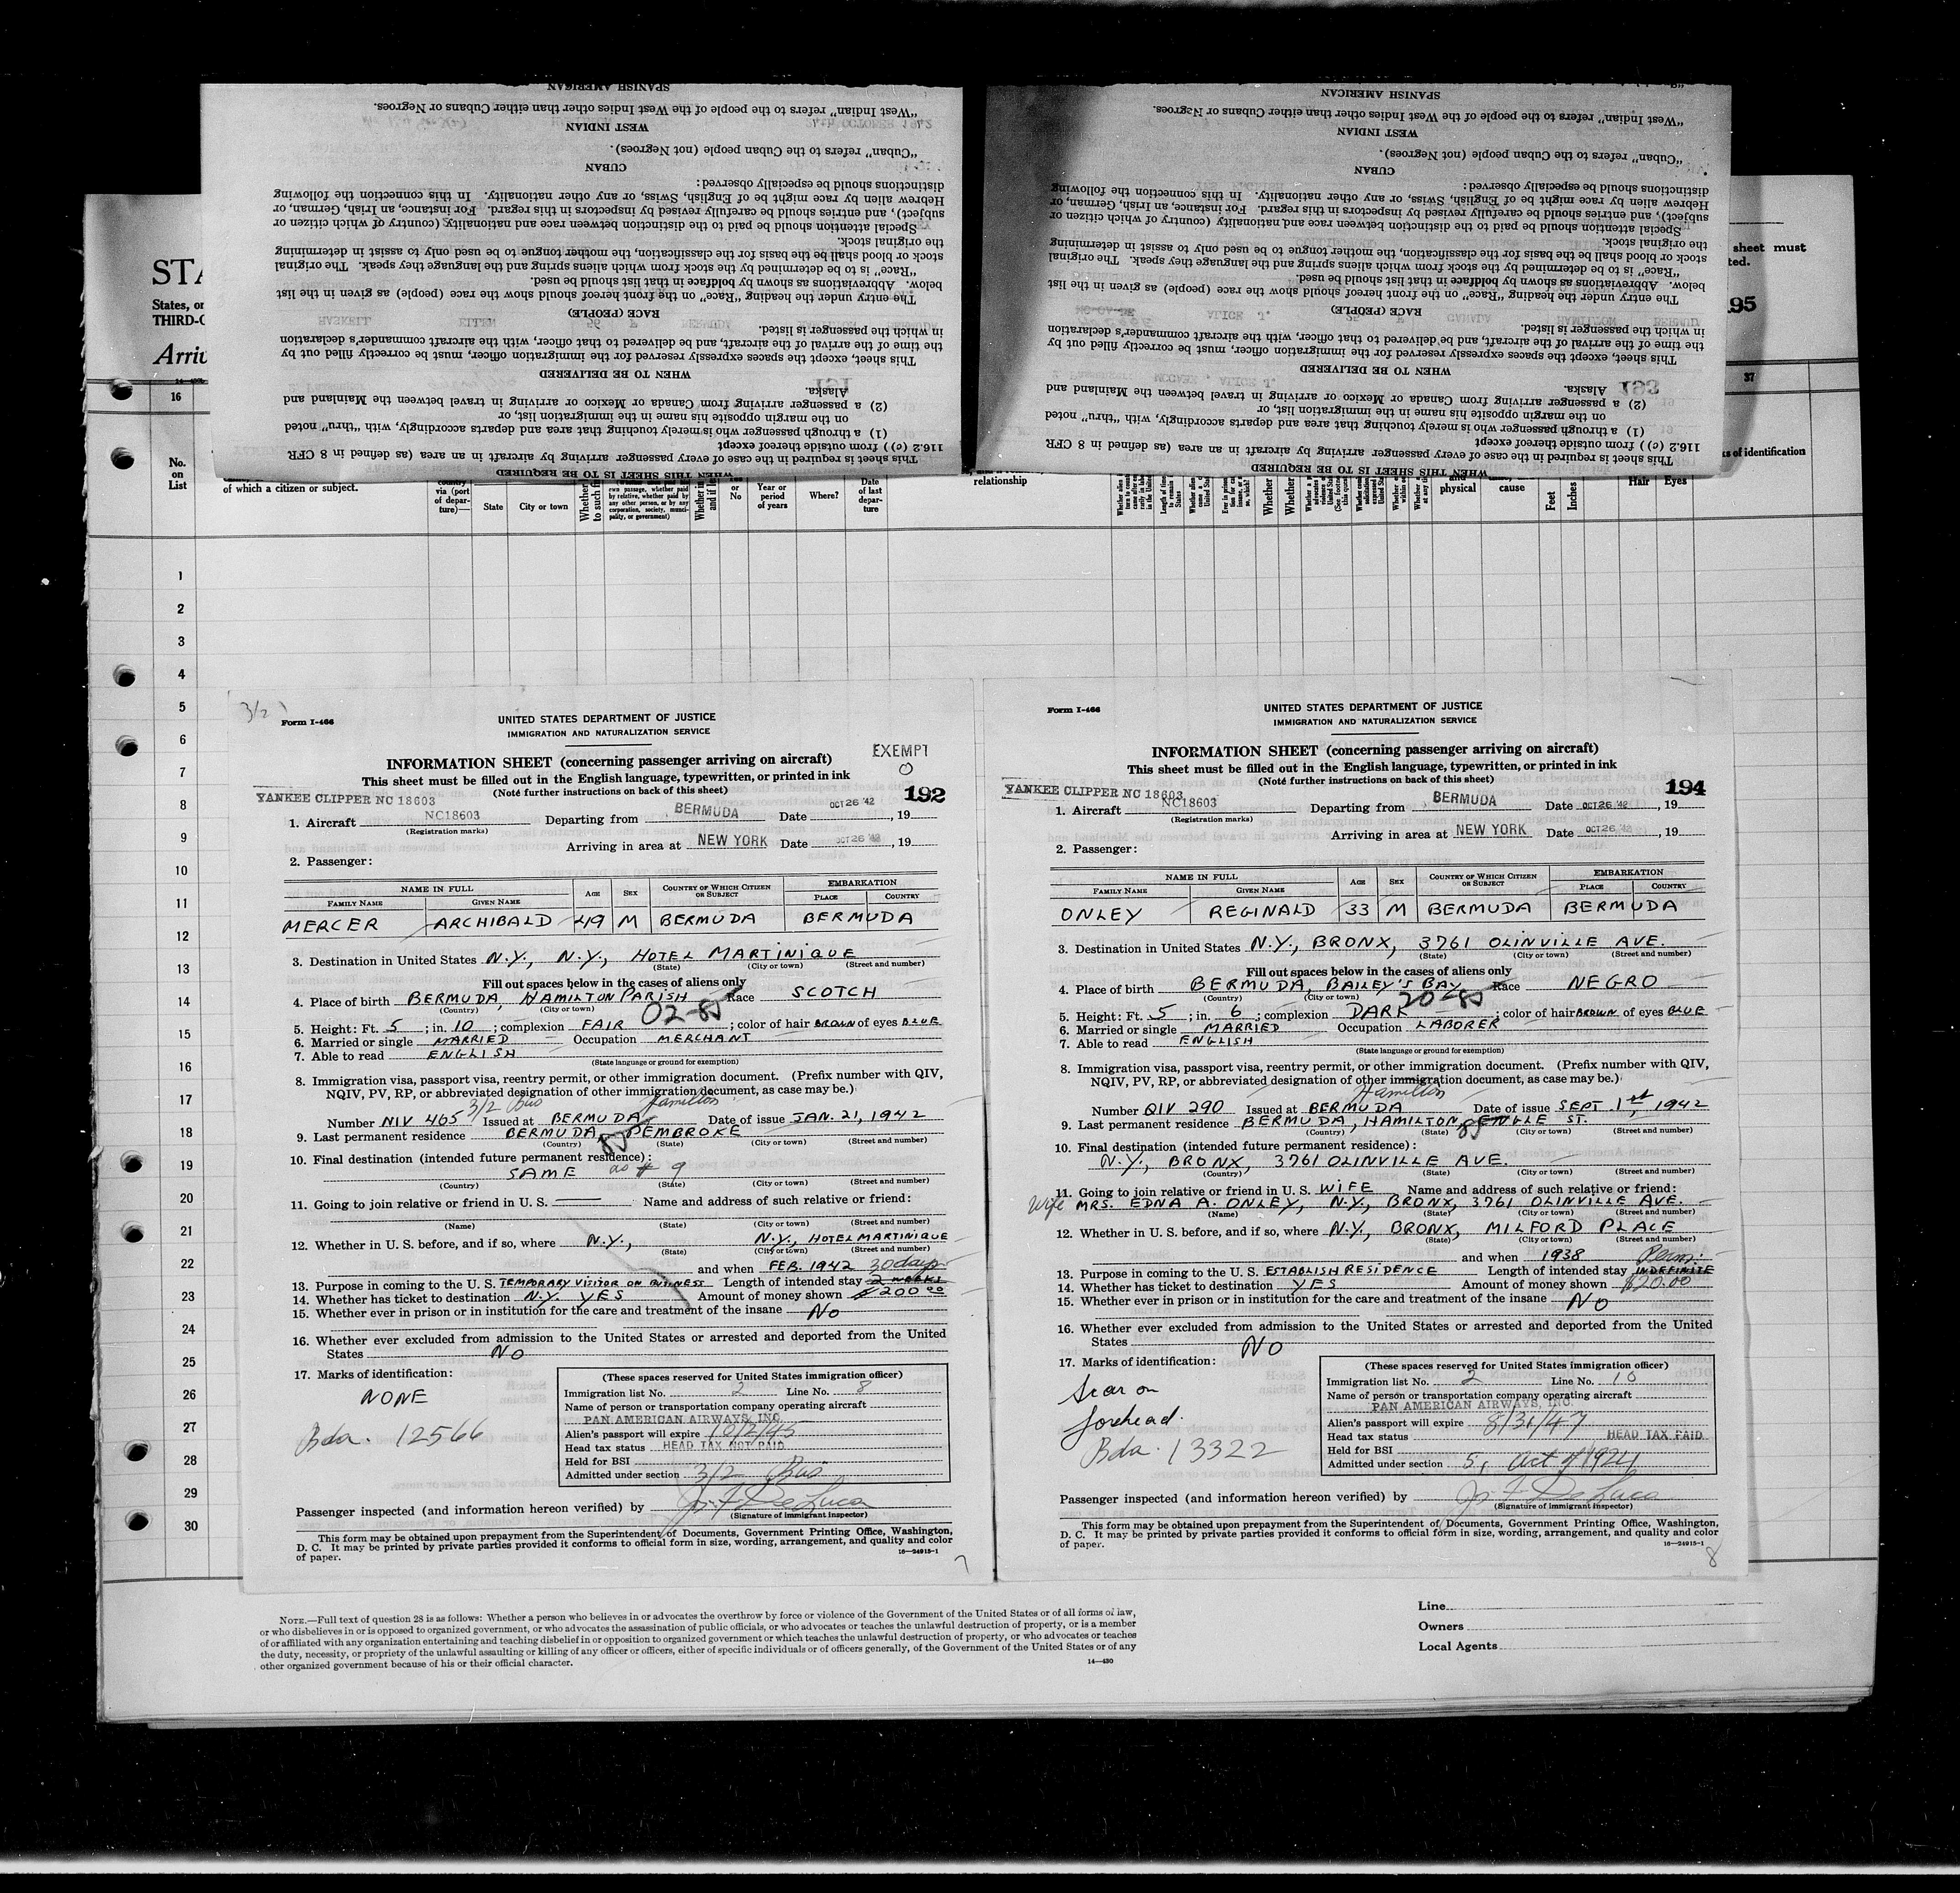 SPANISH AMERICAN
"West Indian" refers to the people of the West Indies other than either Cubans or Negroes.
WEST INDIAN
"Cuban" refers to the Cuban people (not Negroes).
CUBAN
distinctions should be especially observed:
Hebrew alien by race might be of English, Swiss, or any other nationality. In this connection the following
subject), and entries should be carefully revised by inspectors in this regard. For instance, an Irish, German, or
Special attention should be paid to the distinction between race and nationality (country of which citizen or
the original stock.
stock or blood shall be the basis for the classification, the mother tongue to be used only to assist in determining
"Race" is to be determined by the stock from which aliens spring and the language they speak. The original
below. Abbreviations as shown by boldface in that list should be used.
The entry under the heading "Race" on the front hereof should show the race (people) as given in the list
RACE (PEOPLE)
in which the passenger is listed.
the time of the arrival of the aircraft, and be delivered to that officer, with the aircraft commander's declaration
This sheet, except the spaces expressly reserved for the immigration officer, must be correctly filled out by
WHEN TO BE DELIVERED
Alaska.
(2) a passenger arriving from Canada or Mexico or arriving in travel between the Mainland and
on the margin opposite his name in the immigration list, or
(1) a through passenger who is merely touching that area and departs accordingly, with "thru" noted
116.2 (c)) from outside thereof except
This sheet is required in the case of every passenger arriving by aircraft in an area (as defined in 8 CFR
WHEN THIS SHEET IS TO BE REQUIRED
SPANISH AMERICAN
"West Indian" refers to the people of the West Indies other than either Cubans or Negroes.
WEST INDIAN
"Cuban" refers to the Cuban people (not Negroes).
CUBAN
distinctions should be especially observed:
Hebrew alien by race might be of English, Swiss, or any other nationality. In this connection the following
subject), and entries should be carefully revised by inspectors in this regard. For instance, an Irish, German, or
Special attention should be paid to the distinction between race and nationality (country of which citizen or
the original stock.
stock or blood shall be the basis for the classification, the mother tongue to be used only to assist in determining
"Race" is to be determined by the stock from which aliens spring and the language they speak. The original
below. Abbreviations as shown by boldface in that list should be used.
The entry under the heading "Race" on the front hereof should show the race (people) as given in the list
RACE (PEOPLE)
in which the passenger is listed.
the time of the arrival of the aircraft, and be delivered to that officer, with the aircraft commander's declaration
This sheet, except the spaces expressly reserved for the immigration officer, must be correctly filled out by
WHEN TO BE DELIVERED
Alaska.
(2) a passenger arriving from Canada or Mexico or arriving in travel between the Mainland and
on the margin opposite his name in the immigration list, or
(1) a through passenger who is merely touching that area and departs accordingly, with "thru" noted
116.2 (c)) from outside thereof except
This sheet is required in the case of every passenger arriving by aircraft in an area (as defined in 8 CFR
WHEN THIS SHEET IS TO BE REQUIRED
STA
States, or
THIRD-C
Arriv
sheet must
ted.
195
16
37
No.
on
List
of which a citizen or subject.
country
via (port
of depar-
ture)—
State
City or town
Yes
or
No
Year or
period
of years
Where?
Date
of last
depar-
ture
relationship
and
physical
cause
Feet
Inches
Hair
Eyes
ks of identification
1
2
3
4
5
6
7
8
9
10
11
12
13
14
15
16
17
18
19
20
21
22
23
24
25
26
27
28
29
30
3/2
Form I-466
UNITED STATES DEPARTMENT OF JUSTICE
IMMIGRATION AND NATURALIZATION SERVICE
EXEMPT
INFORMATION SHEET (concerning passenger arriving on aircraft)
This sheet must be filled out in the English language, typewritten, or printed in ink
(Note further instructions on back of this sheet)
192
YANKEE CLIPPER NC 18603
1. Aircraft NC18603 Departing from BERMUDA Date OCT 26 '42, 19
(Registration marks)
Arriving in area at NEW YORK Date OCT 26 '42, 19
2. Passenger:
NAME IN FULL AGE SEX COUNTRY OF WHICH CITIZEN OR SUBJECT EMBARKATION
FAMILY NAME GIVEN NAME PLACE COUNTRY
MERCER ARCHIBALD 49 M BERMUDA BERMUDA
3. Destination in United States N.Y., N.Y., HOTEL MARTINIQUE
(State) (City or town) (Street and number)
Fill out spaces below in the cases of aliens only
4. Place of birth BERMUDA, HAMILTON PARISH Race SCOTCH
(Country) (City or town) 02-85
5. Height: Ft. 5; in. 10; complexion FAIR; color of hair BROWN of eyes BLUE
6. Married or single MARRIED Occupation MERCHANT
7. Able to read ENGLISH
(State language or ground for exemption)
8. Immigration visa, passport visa, reentry permit, or other immigration document. (Prefix number with QIV,
NQIV, PV, RP, or abbreviated designation of other immigration document, as case may be.)
3/2 Bus Hamilton
Number NIV 465 Issued at BERMUDA Date of issue JAN. 21, 1942
9. Last permanent residence BERMUDA, PEMBROKE
(Country) 85 (State) (City or town) (Street and number)
10. Final destination (intended future permanent residence):
SAME as # 9
(Country) (State) (City or town) (Street and number)
11. Going to join relative or friend in U. S. Name and address of such relative or friend:
(Name) (State) (City or town) (Street and number)
12. Whether in U. S. before, and if so, where N.Y., N.Y., HOTEL MARTINIQUE
(State) (City or town) (Street and number)
and when FEB. 1942 30 days
13. Purpose in coming to the U. S. TEMPORARY VISITOR ON BUSINESS Length of intended stay 2 WEEKS
14. Whether has ticket to destination N.Y. YES Amount of money shown $200.00
15. Whether ever in prison or in institution for the care and treatment of the insane NO
16. Whether ever excluded from admission to the United States or arrested and deported from the United
States NO
17. Marks of identification:
NONE
Bda. 12566
(These spaces reserved for United States immigration officer)
Immigration list No. 2 Line No. 8
Name of person or transportation company operating aircraft
PAN AMERICAN AIRWAYS, INC.
Alien's passport will expire 10/2/45
Head tax status HEAD TAX NOT PAID
Held for BSI
Admitted under section 3/2 Bus
Passenger inspected (and information hereon verified) by Jos. F. DeLuca
(Signature of immigrant inspector)
This form may be obtained upon prepayment from the Superintendent of Documents, Government Printing Office, Washington,
D. C. It may be printed by private parties provided it conforms to official form in size, wording, arrangement, and quality and color
of paper.
16—24915-1
7
Form I-466
UNITED STATES DEPARTMENT OF JUSTICE
IMMIGRATION AND NATURALIZATION SERVICE
INFORMATION SHEET (concerning passenger arriving on aircraft)
This sheet must be filled out in the English language, typewritten, or printed in ink
(Note further instructions on back of this sheet)
194
YANKEE CLIPPER NC 18603
1. Aircraft NC18603 Departing from BERMUDA Date OCT 26 '42, 19
(Registration marks)
Arriving in area at NEW YORK Date OCT 26 '42, 19
2. Passenger:
NAME IN FULL AGE SEX COUNTRY OF WHICH CITIZEN OR SUBJECT EMBARKATION
FAMILY NAME GIVEN NAME PLACE COUNTRY
ONLEY REGINALD 33 M BERMUDA BERMUDA
3. Destination in United States N.Y., BRONX, 3761 OLINVILLE AVE.
(State) (City or town) (Street and number)
Fill out spaces below in the cases of aliens only
4. Place of birth BERMUDA, BAILEY'S BAY Race NEGRO
(Country) (City or town) 20-85
5. Height: Ft. 5; in. 6; complexion DARK; color of hair BROWN of eyes BLUE
6. Married or single MARRIED Occupation LABORER
7. Able to read ENGLISH
(State language or ground for exemption)
8. Immigration visa, passport visa, reentry permit, or other immigration document. (Prefix number with QIV,
NQIV, PV, RP, or abbreviated designation of other immigration document, as case may be.)
Hamilton
Number QIV 290 Issued at BERMUDA Date of issue SEPT. 1st, 1942
9. Last permanent residence BERMUDA, HAMILTON, ENGLE ST.
(Country) (State) 85 (City or town) (Street and number)
10. Final destination (intended future permanent residence):
N.Y., BRONX, 3761 OLINVILLE AVE.
(Country) (State) (City or town) (Street and number)
11. Going to join relative or friend in U. S. WIFE Name and address of such relative or friend:
Wife MRS. EDNA A. ONLEY, N.Y., BRONX, 3761 OLINVILLE AVE.
(Name) (State) (City or town) (Street and number)
12. Whether in U. S. before, and if so, where N.Y., BRONX, MILFORD PLACE
(State) (City or town) (Street and number)
and when 1938 Perm.
13. Purpose in coming to the U. S. ESTABLISH RESIDENCE Length of intended stay INDEFINITE
14. Whether has ticket to destination YES Amount of money shown $20.00
15. Whether ever in prison or in institution for the care and treatment of the insane NO
16. Whether ever excluded from admission to the United States or arrested and deported from the United
States NO
17. Marks of identification:
Scar on
forehead.
Bda. 13322
(These spaces reserved for United States immigration officer)
Immigration list No. 2 Line No. 10
Name of person or transportation company operating aircraft
PAN AMERICAN AIRWAYS, INC.
Alien's passport will expire 8/31/47
Head tax status HEAD TAX PAID
Held for BSI
Admitted under section 5, Act of 1924
Passenger inspected (and information hereon verified) by Jos. F. DeLuca
(Signature of immigrant inspector)
This form may be obtained upon prepayment from the Superintendent of Documents, Government Printing Office, Washington,
D. C. It may be printed by private parties provided it conforms to official form in size, wording, arrangement, and quality and color
of paper.
16—24915-1
8
NOTE.—Full text of question 28 is as follows: Whether a person who believes in or advocates the overthrow by force or violence of the Government of the United States or of all forms of law,
or who disbelieves in or is opposed to organized government, or who advocates the assassination of public officials, or who advocates or teaches the unlawful destruction of property, or is a member
of or affiliated with any organization entertaining and teaching disbelief in or opposition to organized government or which teaches the unlawful destruction of property, or who advocates or teaches
the duty, necessity, or propriety of the unlawful assaulting or killing of any officer or officers, either of specific individuals or of officers generally, of the Government of the United States or of any
other organized government because of his or their official character.
14—430
Line
Owners
Local Agents